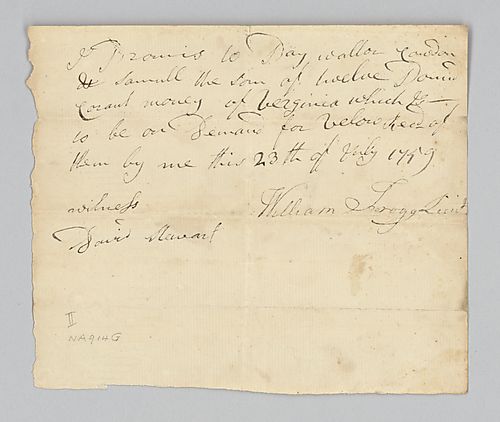 I Promis to Pay wallor Cowdin
& Samull the som of twelve Pound
Corant money of Verginea which Is
to be on Demand for Velow Reed of
them by me this 23th of July 1759
witness
William Frogg Lieut
David Stewart
II
NA914G